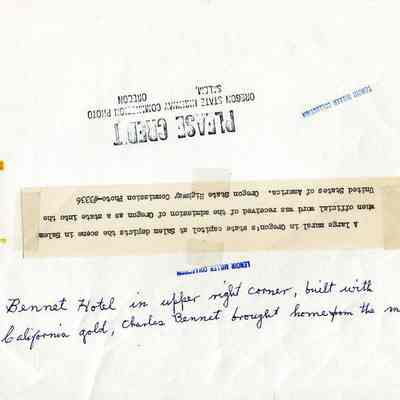 PLEASE CREDIT
OREGON STATE HIGHWAY COMMISSION PHOTO
SALEM, OREGON
LENOIR MILLER COLLECTION
A large mural in Oregon's state capitol at Salem depicts the scene in Salem
when official word was received of the admission of Oregon as a state into the
United States of America. Oregon State Highway Commission Photo
LENOIR MILLER COLLECTION
Bennet Hotel in upper right corner, built with
California gold, Charles Bennet brought home from the m